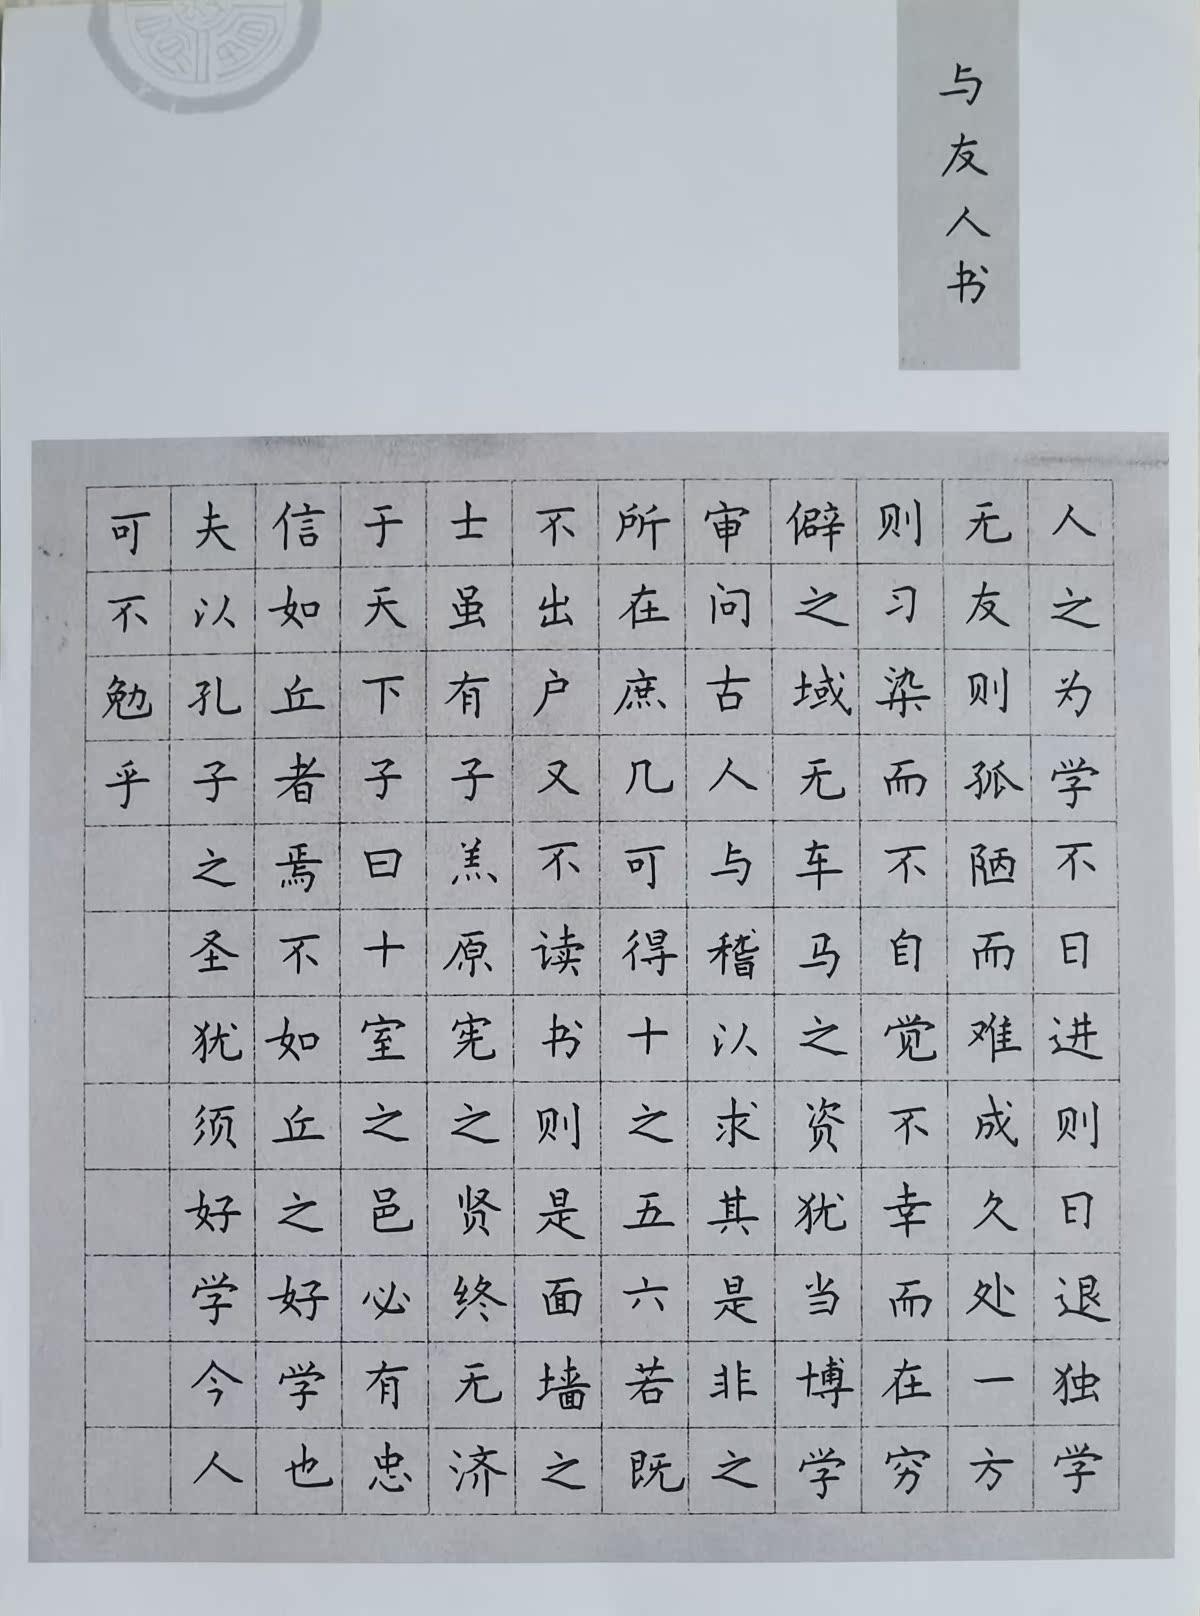 与友人书
人之为学不日进则日退独学
无友则孤陋而难成久处一方
则习染而不自觉不幸而在穷
僻之域无车马之资犹当博学
审问古人与稽以求其是非之
所在庶几可得十之五六若既
不出户又不读书则是面墙之
士虽有子羔原宪之贤终无济
于天下子曰十室之邑必有忠
信如丘者焉不如丘之好学也
夫以孔子之圣犹须好学今人
可不勉乎